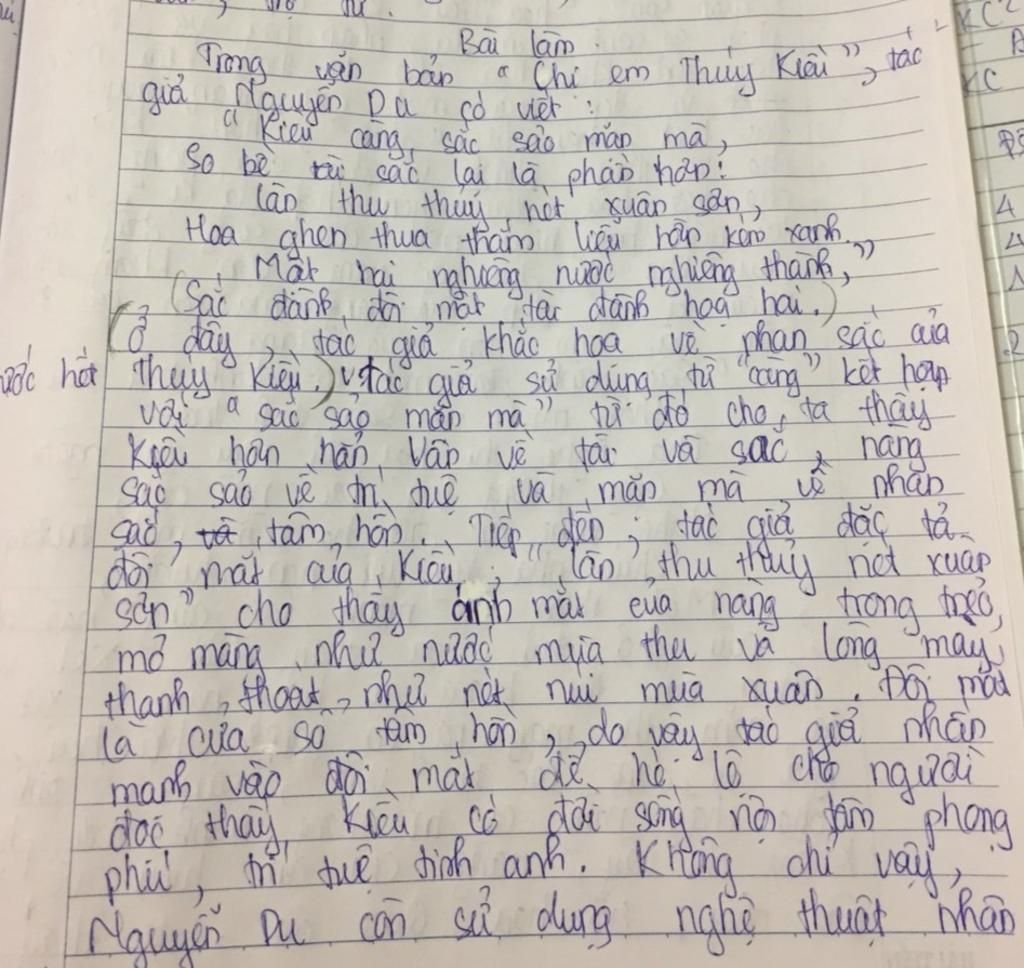 Bài làm
Trong văn bản "Chị em Thúy Kiều", tác
giả Nguyễn Du có viết:
"Kiều càng sắc sảo mặn mà,
So bề tài sắc lại là phần hơn:
Làn thu thuỷ nét xuân sơn,
Hoa ghen thua thắm liễu hờn kém xanh.
Một hai nghiêng nước nghiêng thành,"
(Sắc đành đòi một tài đành hoạ hai.)
(Ở đây, tác giả khắc hoạ về nhan sắc của
Thúy Kiều.) tác giả sử dụng từ "càng" kết hợp
với "sắc sảo mặn mà" từ đó cho ta thấy
Kiều hơn hẳn Vân về tài và sắc, nàng
sắc sảo về trí tuệ và mặn mà về nhan
sắc, tâm hồn. Tiếp đến, tác giả đặc tả
đôi mắt của Kiều: "làn thu thủy nét xuân
sơn" cho thấy ánh mắt của nàng trong trẻo,
mơ màng như nước mùa thu và lông mày
thanh thoát như nét núi mùa xuân. Đôi mắt
là cửa sổ tâm hồn, do vậy tác giả nhấn
mạnh vào đôi mắt để hé lộ cho người
đọc thấy Kiều có đời sống nội tâm phong
phú, trí tuệ tinh anh. Không chỉ vậy,
Nguyễn Du còn sử dụng nghệ thuật nhân
KC
KC
4
2